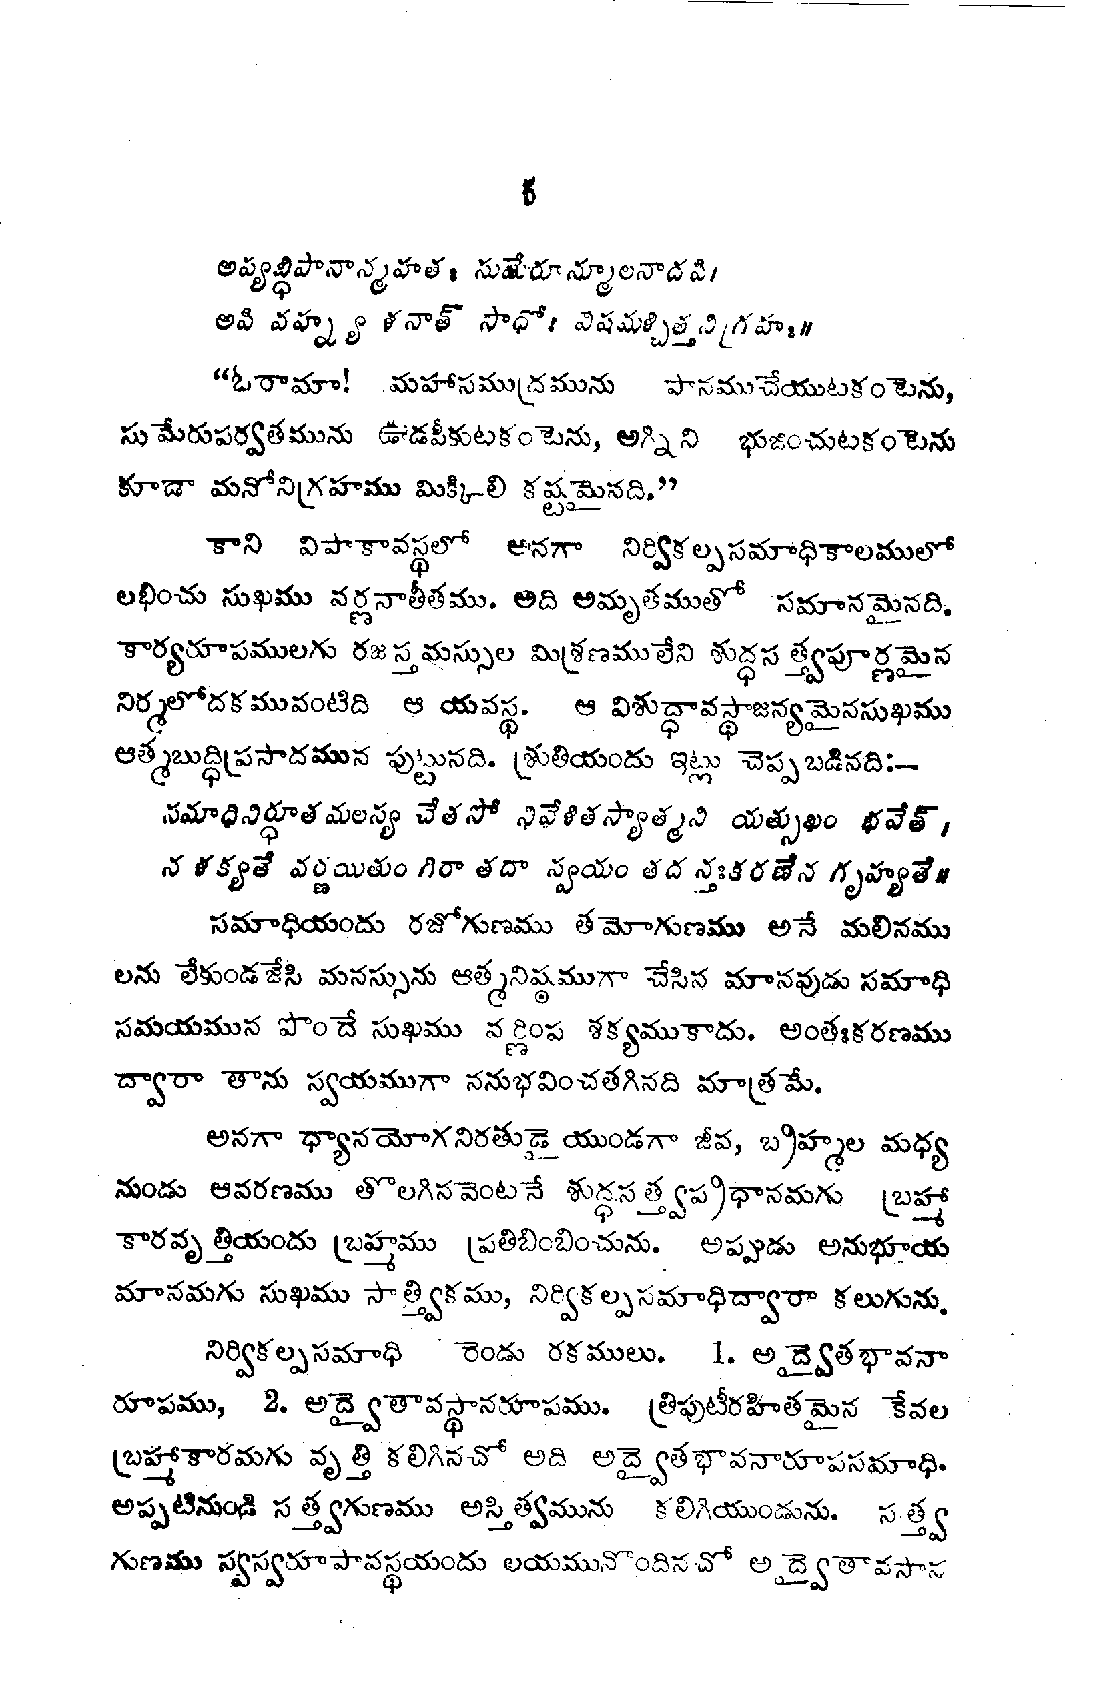 క
అప్యబ్ధిపానాన్మహతః సుమేరూన్మూలనాదపి।
అపి వహ్న్యశనాత్ సాధోః విషమశ్చిత్తనిగ్రహః॥
“ఓరామా! మహాసముద్రమును పానముచేయుటకంటెను,
సుమేరుపర్వతమును ఊడపీకుటకంటెను, అగ్నిని భుజించుటకంటెను
కూడా మనోనిగ్రహము మిక్కిలి కష్టమైనది.”
కాని విపాకావస్థలో అనగా నిర్వికల్పసమాధికాలములో
లభించు సుఖము వర్ణనాతీతము. అది అమృతముతో సమానమైనది.
కార్యరూపములగు రజస్తమస్సుల మిశ్రణములేని శుద్ధసత్త్వపూర్ణమైన
నిర్మలోదకమువంటిది ఆ యవస్థ. ఆ విశుద్ధావస్థాజన్యమైనసుఖము
ఆత్మబుద్ధిప్రసాదమున పుట్టునది. శ్రుతియందు ఇట్లు చెప్పబడినది:—
సమాధినిర్ధూతమలస్య చేతసో నివేశితస్యాత్మని యత్సుఖం భవేత్,
న శక్యతే వర్ణయితుం గిరా తదా స్వయం తదన్తఃకరణేన గృహ్యతే॥
సమాధియందు రజోగుణము తమోగుణము అనే మలినము
లను లేకుండజేసి మనస్సును ఆత్మనిష్ఠముగా చేసిన మానవుడు సమాధి
సమయమున పొందే సుఖము వర్ణింప శక్యముకాదు. అంతఃకరణము
ద్వారా తాను స్వయముగా ననుభవించతగినది మాత్రమే.
అనగా ధ్యానయోగనిరతుడై యుండగా జీవ, బ్రహ్మల మధ్య
నుండు ఆవరణము తొలగినవెంటనే శుద్ధసత్త్వప్రధానమగు బ్రహ్మా
కారవృత్తియందు బ్రహ్మము ప్రతిబింబించును. అప్పుడు అనుభూయ
మానమగు సుఖము సాత్త్వికము, నిర్వికల్పసమాధిద్వారా కలుగును.
నిర్వికల్పసమాధి రెండు రకములు. 1. అద్వైతభావనా
రూపము, 2. అద్వైతావస్థానరూపము. త్రిపుటీరహితమైన కేవల
బ్రహ్మాకారమగు వృత్తి కలిగినచో అది అద్వైతభావనారూపసమాధి.
అప్పటినుండి సత్త్వగుణము అస్తిత్వమును కలిగియుండును. సత్త్వ
గుణము స్వస్వరూపావస్థయందు లయమునొందినచో అద్వైతావసాన